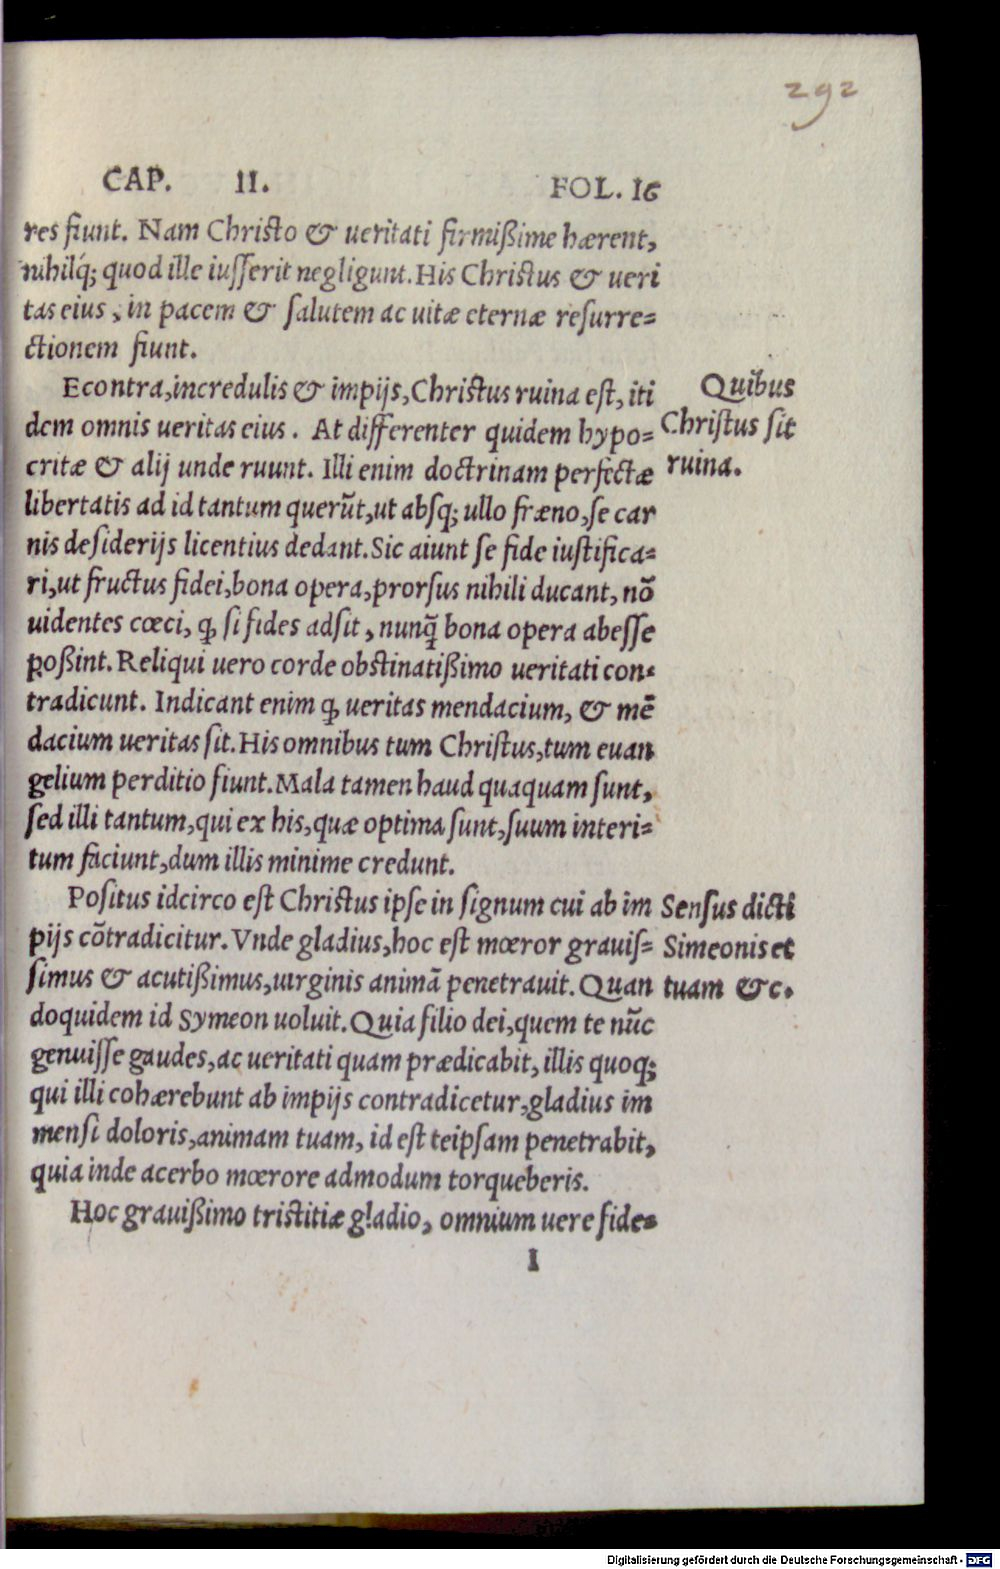 292
CAP. II. FOL. 16
res fiunt. Nam Christo & ueritati firmißime hærent,
nihilq́; quod ille iusserit negligunt. His Christus & ueri
tas eius, in pacem & salutem ac uitæ eternæ resurre=
ctionem fiunt.
Econtra, incredulis & impijs, Christus ruina est, iti
dem omnis ueritas eius. At differenter quidem hypo=
critæ & alij unde ruunt. Illi enim doctrinam perfectæ
libertatis ad id tantum querũt, ut absq; ullo fræno, se car
nis desiderijs licentius dedant. Sic aiunt se fide iustifica=
ri, ut fructus fidei, bona opera, prorsus nihili ducant, nõ
uidentes cœci, ꝙ si fides adsit, nunq̃ bona opera abesse
poßint. Reliqui uero corde obstinatißimo ueritati con=
tradicunt. Indicant enim ꝙ ueritas mendacium, & mẽ
dacium ueritas sit. His omnibus tum Christus, tum euan
gelium perditio fiunt. Mala tamen haud quaquam sunt,
sed illi tantum, qui ex his, quæ optima sunt, suum interi=
tum faciunt, dum illis minime credunt.
Positus idcirco est Christus ipse in signum cui ab im
pijs cõtradicitur. Vnde gladius, hoc est mœror grauis=
simus & acutißimus, uirginis animã penetrauit. Quan
doquidem id Symeon uoluit. Quia filio dei, quem te nũc
genuisse gaudes, ac ueritati quam prædicabit, illis quoq;
qui illi cohærebunt ab impijs contradicetur, gladius im
mensi doloris, animam tuam, id est teipsam penetrabit,
quia inde acerbo mœrore admodum torqueberis.
Hoc grauißimo tristitiæ gladio, omnium uere fide=
I
Quibus
Christus sit
ruina.
Sensus dicti
Simeonis et
tuam &c.
Digitalisierung gefördert durch die Deutsche Forschungsgemeinschaft - DFG